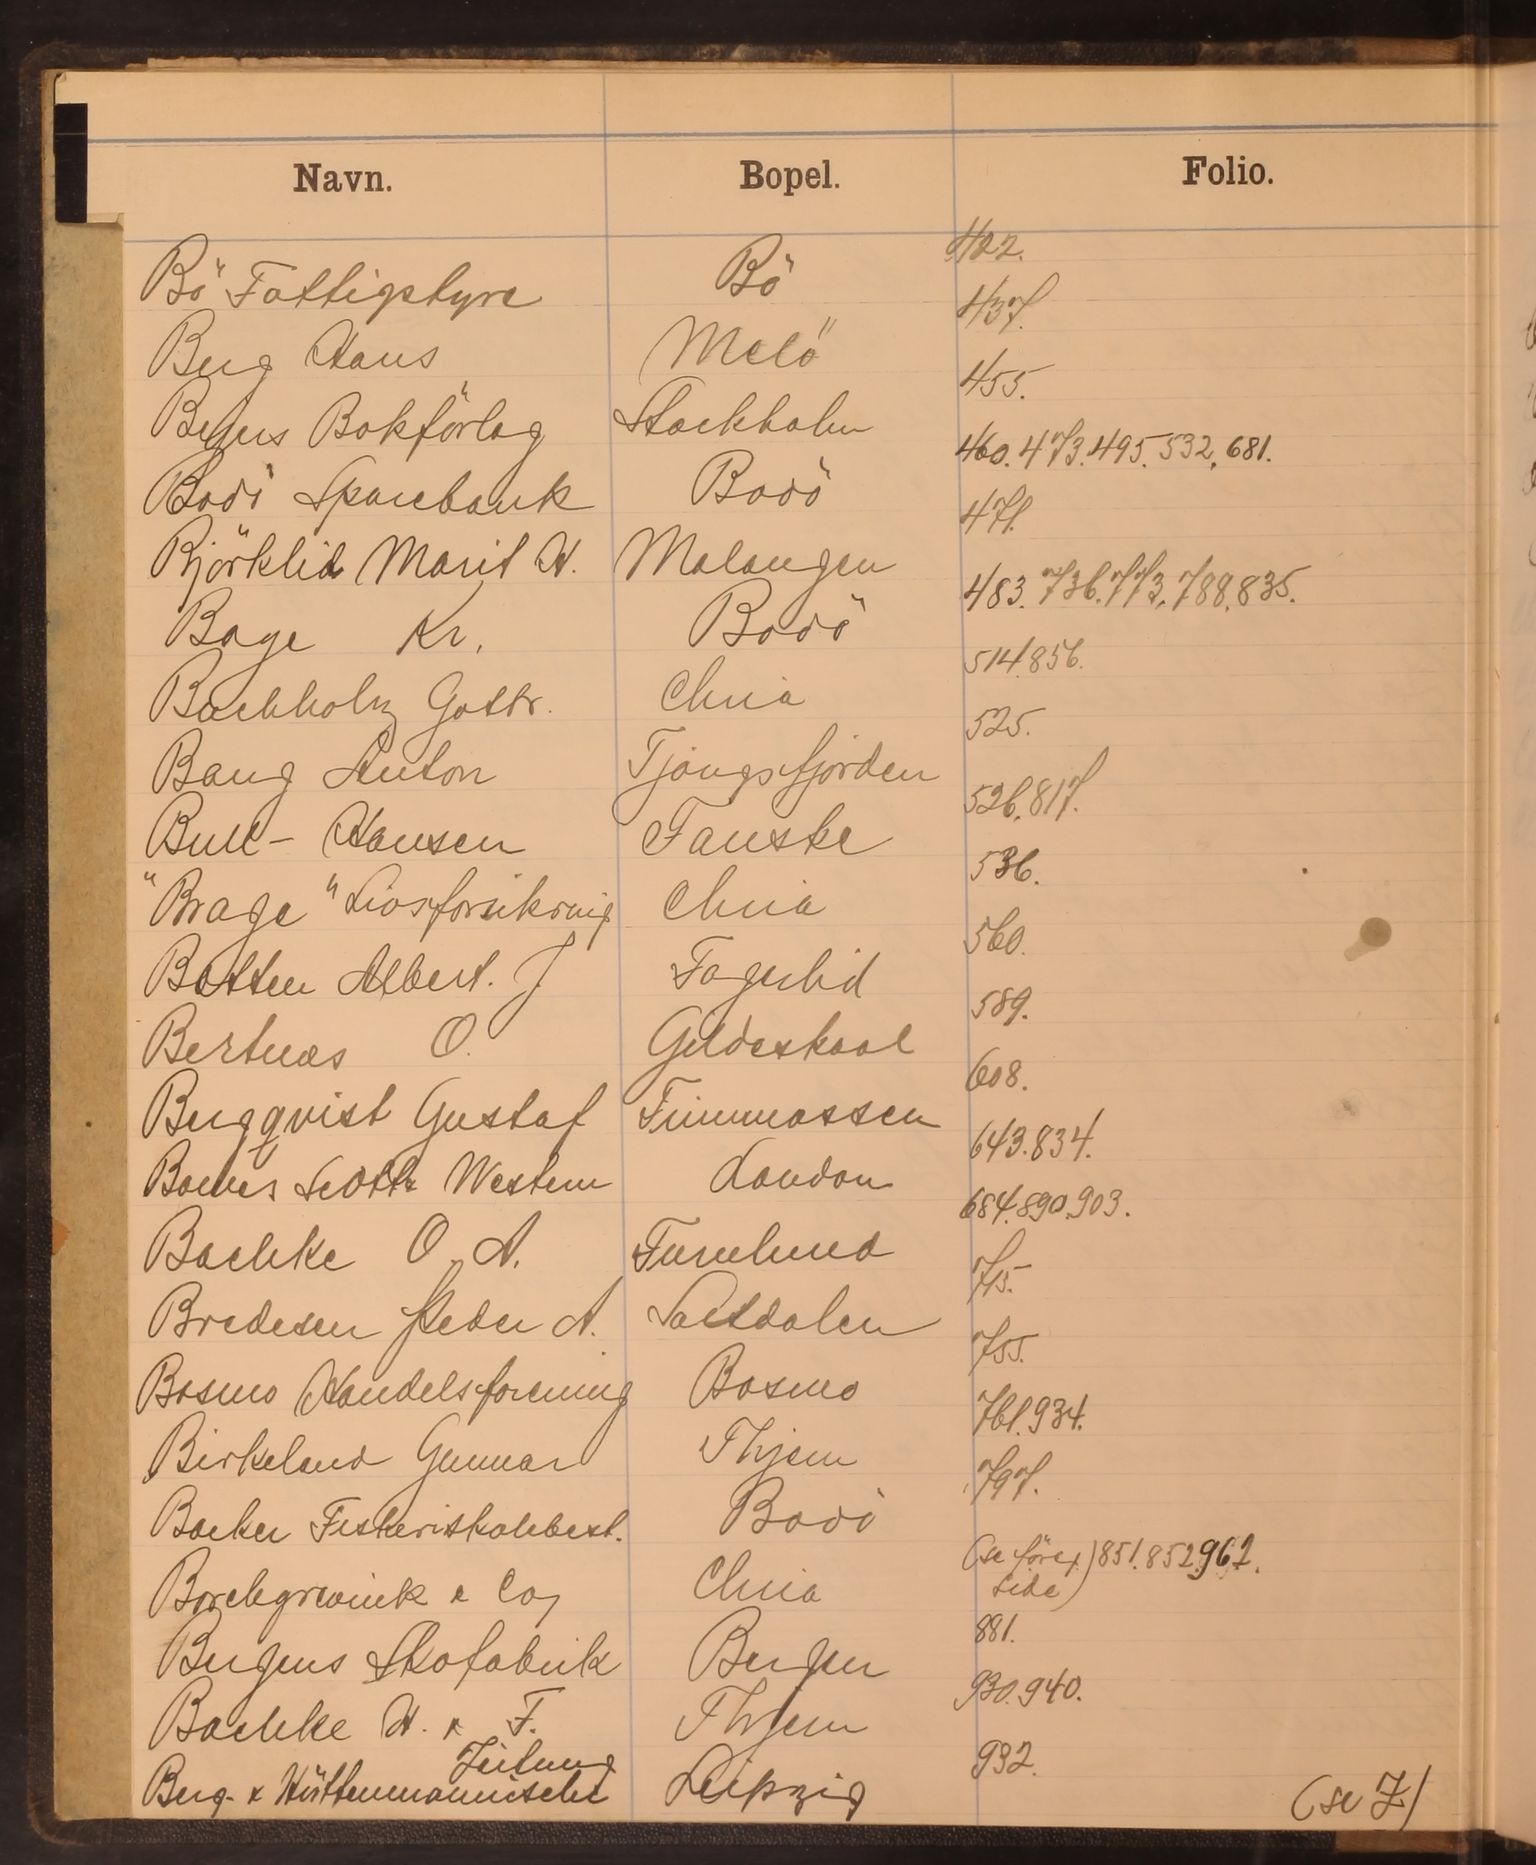 Navn. Bopel. Folio.
Bö Fattigstyre Bö 422.
Berg Hans Melö 437.
Beijers Bokförlag Stockholm 455.
Bodö Sparebank Bodö 460. 473. 495. 532, 681.
Björklid Marit H. Malangen 471.
Bage Kr. Bodö 483. 736. 773. 788. 835.
Buchholz Gottr. Chria 514. 856.
Bang Anton Tjongsfjorden 525.
Bull-Hansen Fauske 526. 817.
"Brage" Livsforsikring Chria 536.
Botten Albert. J Fagerlid 560.
Bertnæs O. Gildeskaal 589.
Bergqvist Gustaf 608.
Scott & Western London 643. 834.
Bachke O. A. Furulund 684. 890. 903.
Bredesen Peder A. Saltdalen 715.
Bosmo Handelsforening Bosmo 755.
Birkeland Gunnar Thjem 761. 934.
Backer Fiskeriskolebest. Bodö 797.
Borchgrevink & Co, Chria (se förex) 851. 852. 962.
side)
Bergens Skofabrik Bergen 881.
Bachke H. & F. Thjem 930. 940.
Zeitung
Berg- & Hüttenmannische Leipzig 932.
(se Z)